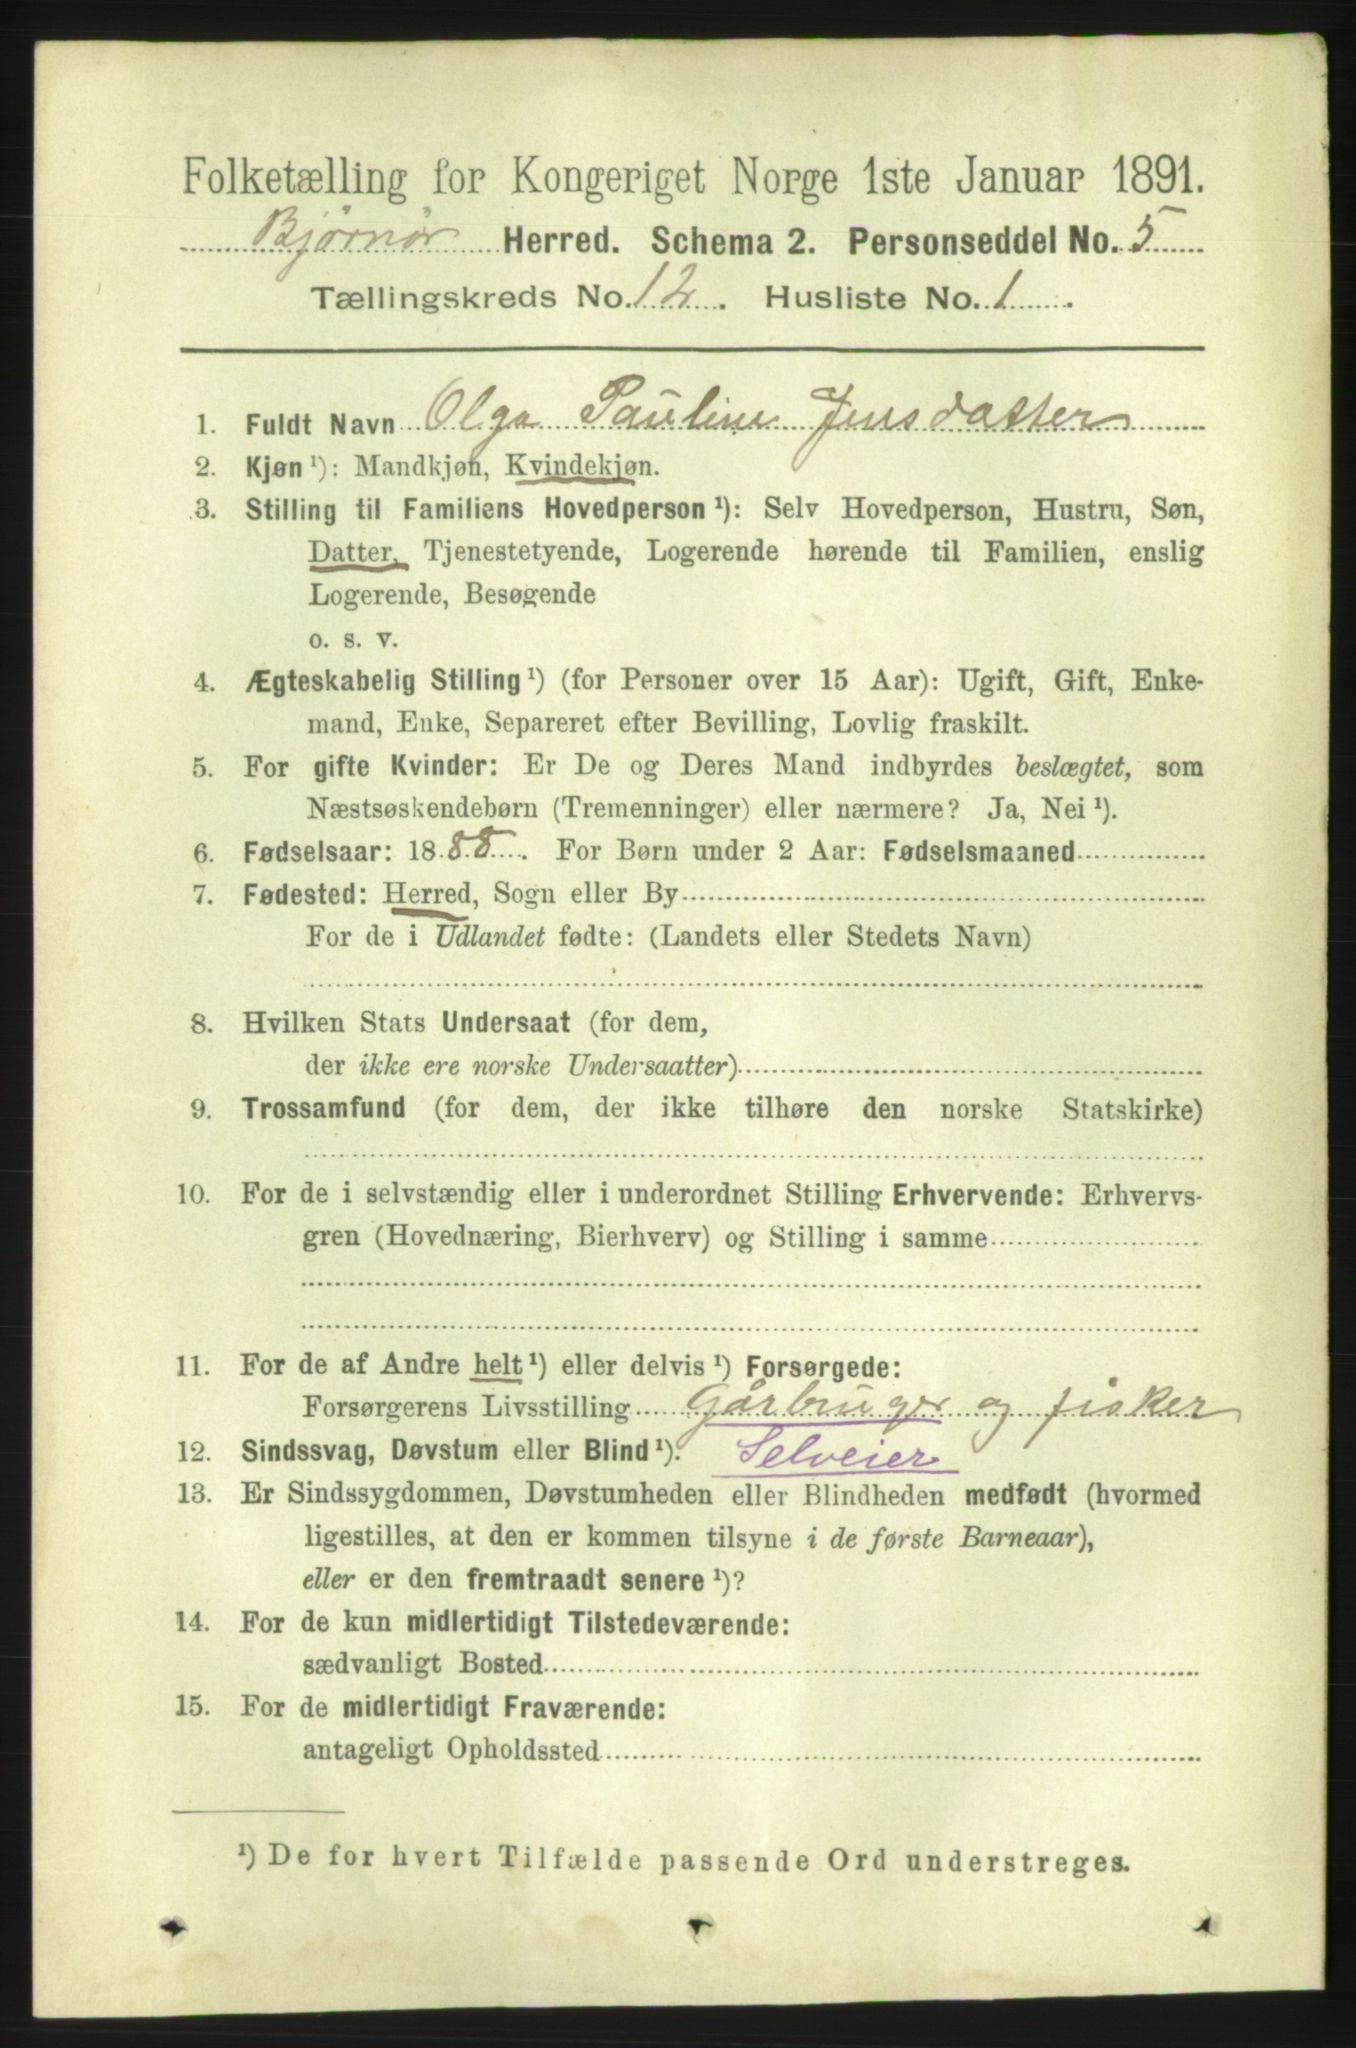 Folketælling for Kongeriget Norge 1ste Januar 1891.
Bjørnør Herred. Schema 2. Personseddel No. 5
Tællingskreds No. 12. Husliste No. 1.
1. Fuldt Navn Olga Pauline Jensdatter
2. Kjøn ¹): Mandkjøn, Kvindekjøn.
3. Stilling til Familiens Hovedperson ¹): Selv Hovedperson, Hustru, Søn,
Datter, Tjenestetyende, Logerende hørende til Familien, enslig
Logerende, Besøgende
o. s. v.
4. Ægteskabelig Stilling ¹) (for Personer over 15 Aar): Ugift, Gift, Enke-
mand, Enke, Separeret efter Bevilling, Lovlig fraskilt.
5. For gifte Kvinder: Er De og Deres Mand indbyrdes beslægtet, som
Næstsøskendebørn (Tremenninger) eller nærmere? Ja, Nei ¹).
6. Fødselsaar: 1888. For Børn under 2 Aar: Fødselsmaaned
7. Fødested: Herred, Sogn eller By
For de i Udlandet fødte: (Landets eller Stedets Navn)
8. Hvilken Stats Undersaat (for dem,
der ikke ere norske Undersaatter)
9. Trossamfund (for dem, der ikke tilhøre den norske Statskirke)
10. For de i selvstændig eller i underordnet Stilling Erhvervende: Erhvervs-
gren (Hovednæring, Bierhverv) og Stilling i samme
11. For de af Andre helt ¹) eller delvis ¹) Forsørgede:
Forsørgerens Livsstilling Gårbruger og fisker
12. Sindssvag, Døvstum eller Blind ¹). Selveier
13. Er Sindssygdommen, Døvstumheden eller Blindheden medfødt (hvormed
ligestilles, at den er kommen tilsyne i de første Barneaar),
eller er den fremtraadt senere ¹)?
14. For de kun midlertidigt Tilstedeværende:
sædvanligt Bosted
15. For de midlertidigt Fraværende:
antageligt Opholdssted
¹) De for hvert Tilfælde passende Ord understreges.